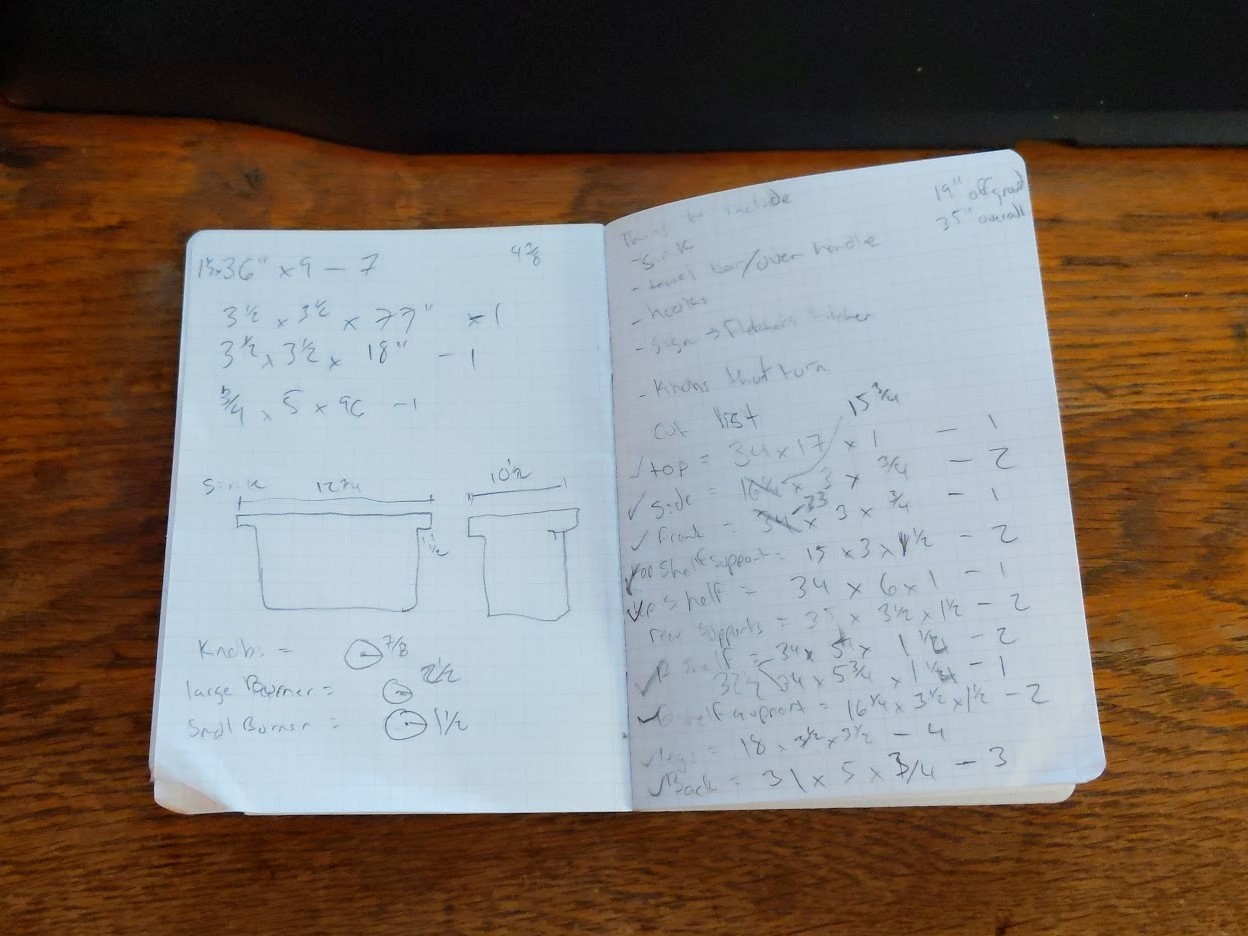 36" x 9 - 7
4 7/8
3 1/2 x 3 1/2 x 77" - 1
3 1/2 x 3 1/2 x 18" - 1
3/4 x 5 x 96 - 1
Sink
10 1/2
1 1/2
Knobs = 7/8
large Burner = 2 1/2
Small Burner = 1 1/2
19" off grnd
35" overall
to include
- Sink
- towel bar/oven handle
- hooks
- Sign → Fletcher's kitchen
- Knobs that turn
cut list
15 3/4
✓ top = 34 x 17 x 1 - 1
✓ Side = 16 1/4 x 3 x 3/4 - 2
✓ Front = 34 33 x 3 x 3/4 - 1
top Shelf support = 15 x 3 x 1 1/2 - 2
top Shelf = 34 x 6 x 1 - 1
rear supports = 35 x 3 1/2 x 1 1/2 - 2
✓ B Shelf = 34 x 5 x 1 1/2 - 2
32 1/2 34 x 5 3/4 x 1 1/2 - 1
✓ B Shelf support = 16 1/4 x 3 1/2 x 1 1/2 - 2
✓ legs = 18 x 3 1/2 x 3 1/2 - 4
✓ Back = 31 x 5 x 3/4 - 3